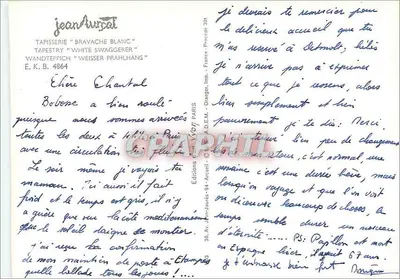 jean Lurçat
TAPISSERIE "BRAVACHE BLANC"
TAPESTRY "WHITE SWAGGERER"
WANDTEPPICH "WEISSER PRAHLHANS"
E.K.B. 4864
Chère Chantal
Bobosse a bien roulé
puisque nous sommes arrivées
toutes les deux à
avec une circulation
Le soir même j'voyais ta
maman. Ici aussi il fait
froid et le temps est gris, il n'y
a guère que sur la côte méditerranéenne
que le soleil daigne se montrer.
J'ai reçu la confirmation
de mon maintien de poste à Etampes
quelle ballade tous les jours !....
je devrais te remercier pour
le délicieux accueil que tu
m'as réservé à Detmold, hélas
je n'arrive pas à exprimer
tout ce que je ressens, alors
bien simplement et bien
pauvrement je te dis: Merci
bien peu de changements
c'est normal, une
semaine c'est une durée brève, mais
lorsqu'on voyage et que l'on voit
ou découvre beaucoup de choses le
temps semble durer un morceau
d'éternité..... PS: Papillon est mort
en Espagne hier, il avait 67 ans.
Je t'embrasse bien fort
CRAPHIL